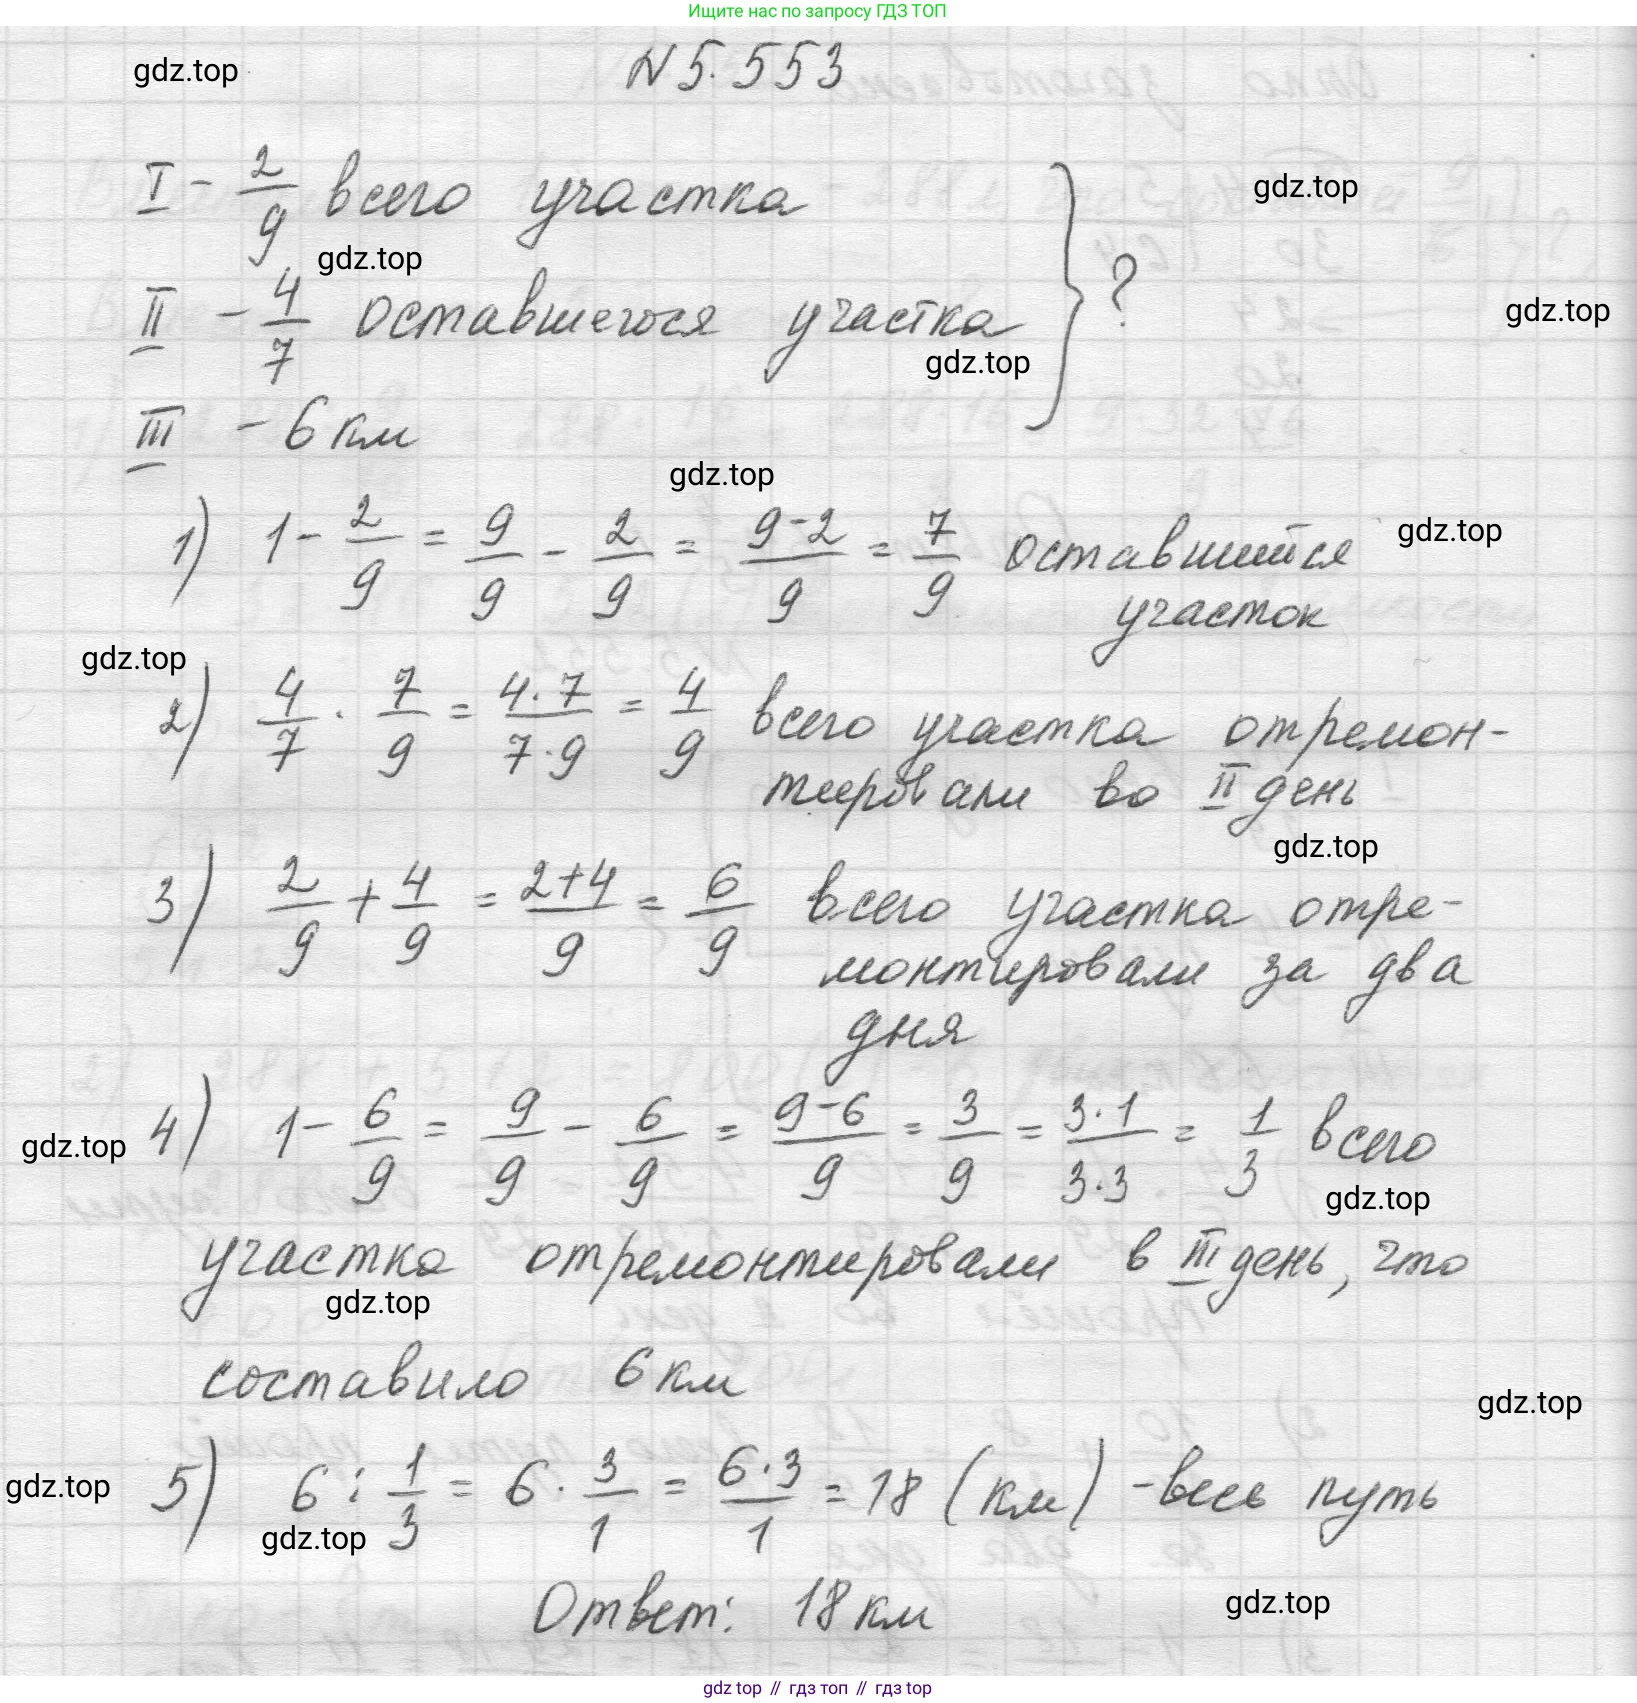 Ищите нас по запросу ГДЗ ТОП
N 5.553
gdz.top
I - 2/9 всего участка
gdz.top
gdz.top
II - 4/7 оставшегося участка } ?
gdz.top
gdz.top
III - 6 км
gdz.top
1) 1 - 2/9 = 9/9 - 2/9 = (9-2)/9 = 7/9 оставшийся
gdz.top
участок
gdz.top
2) 4/7 · 7/9 = (4·7)/(7·9) = 4/9 всего участка отремон-
тировали во II день
gdz.top
3) 2/9 + 4/9 = (2+4)/9 = 6/9 всего участка отре-
монтировали за два
дня
gdz.top
4) 1 - 6/9 = 9/9 - 6/9 = (9-6)/9 = 3/9 = (3·1)/(3·3) = 1/3 всего
gdz.top
участка отремонтировали в III день, что
gdz.top
составило 6 км
gdz.top
gdz.top
5) 6 : 1/3 = 6 · 3/1 = (6·3)/1 = 18 (км) - весь путь
gdz.top
Ответ: 18 км
gdz.top
gdz top // гдз топ // гдз top